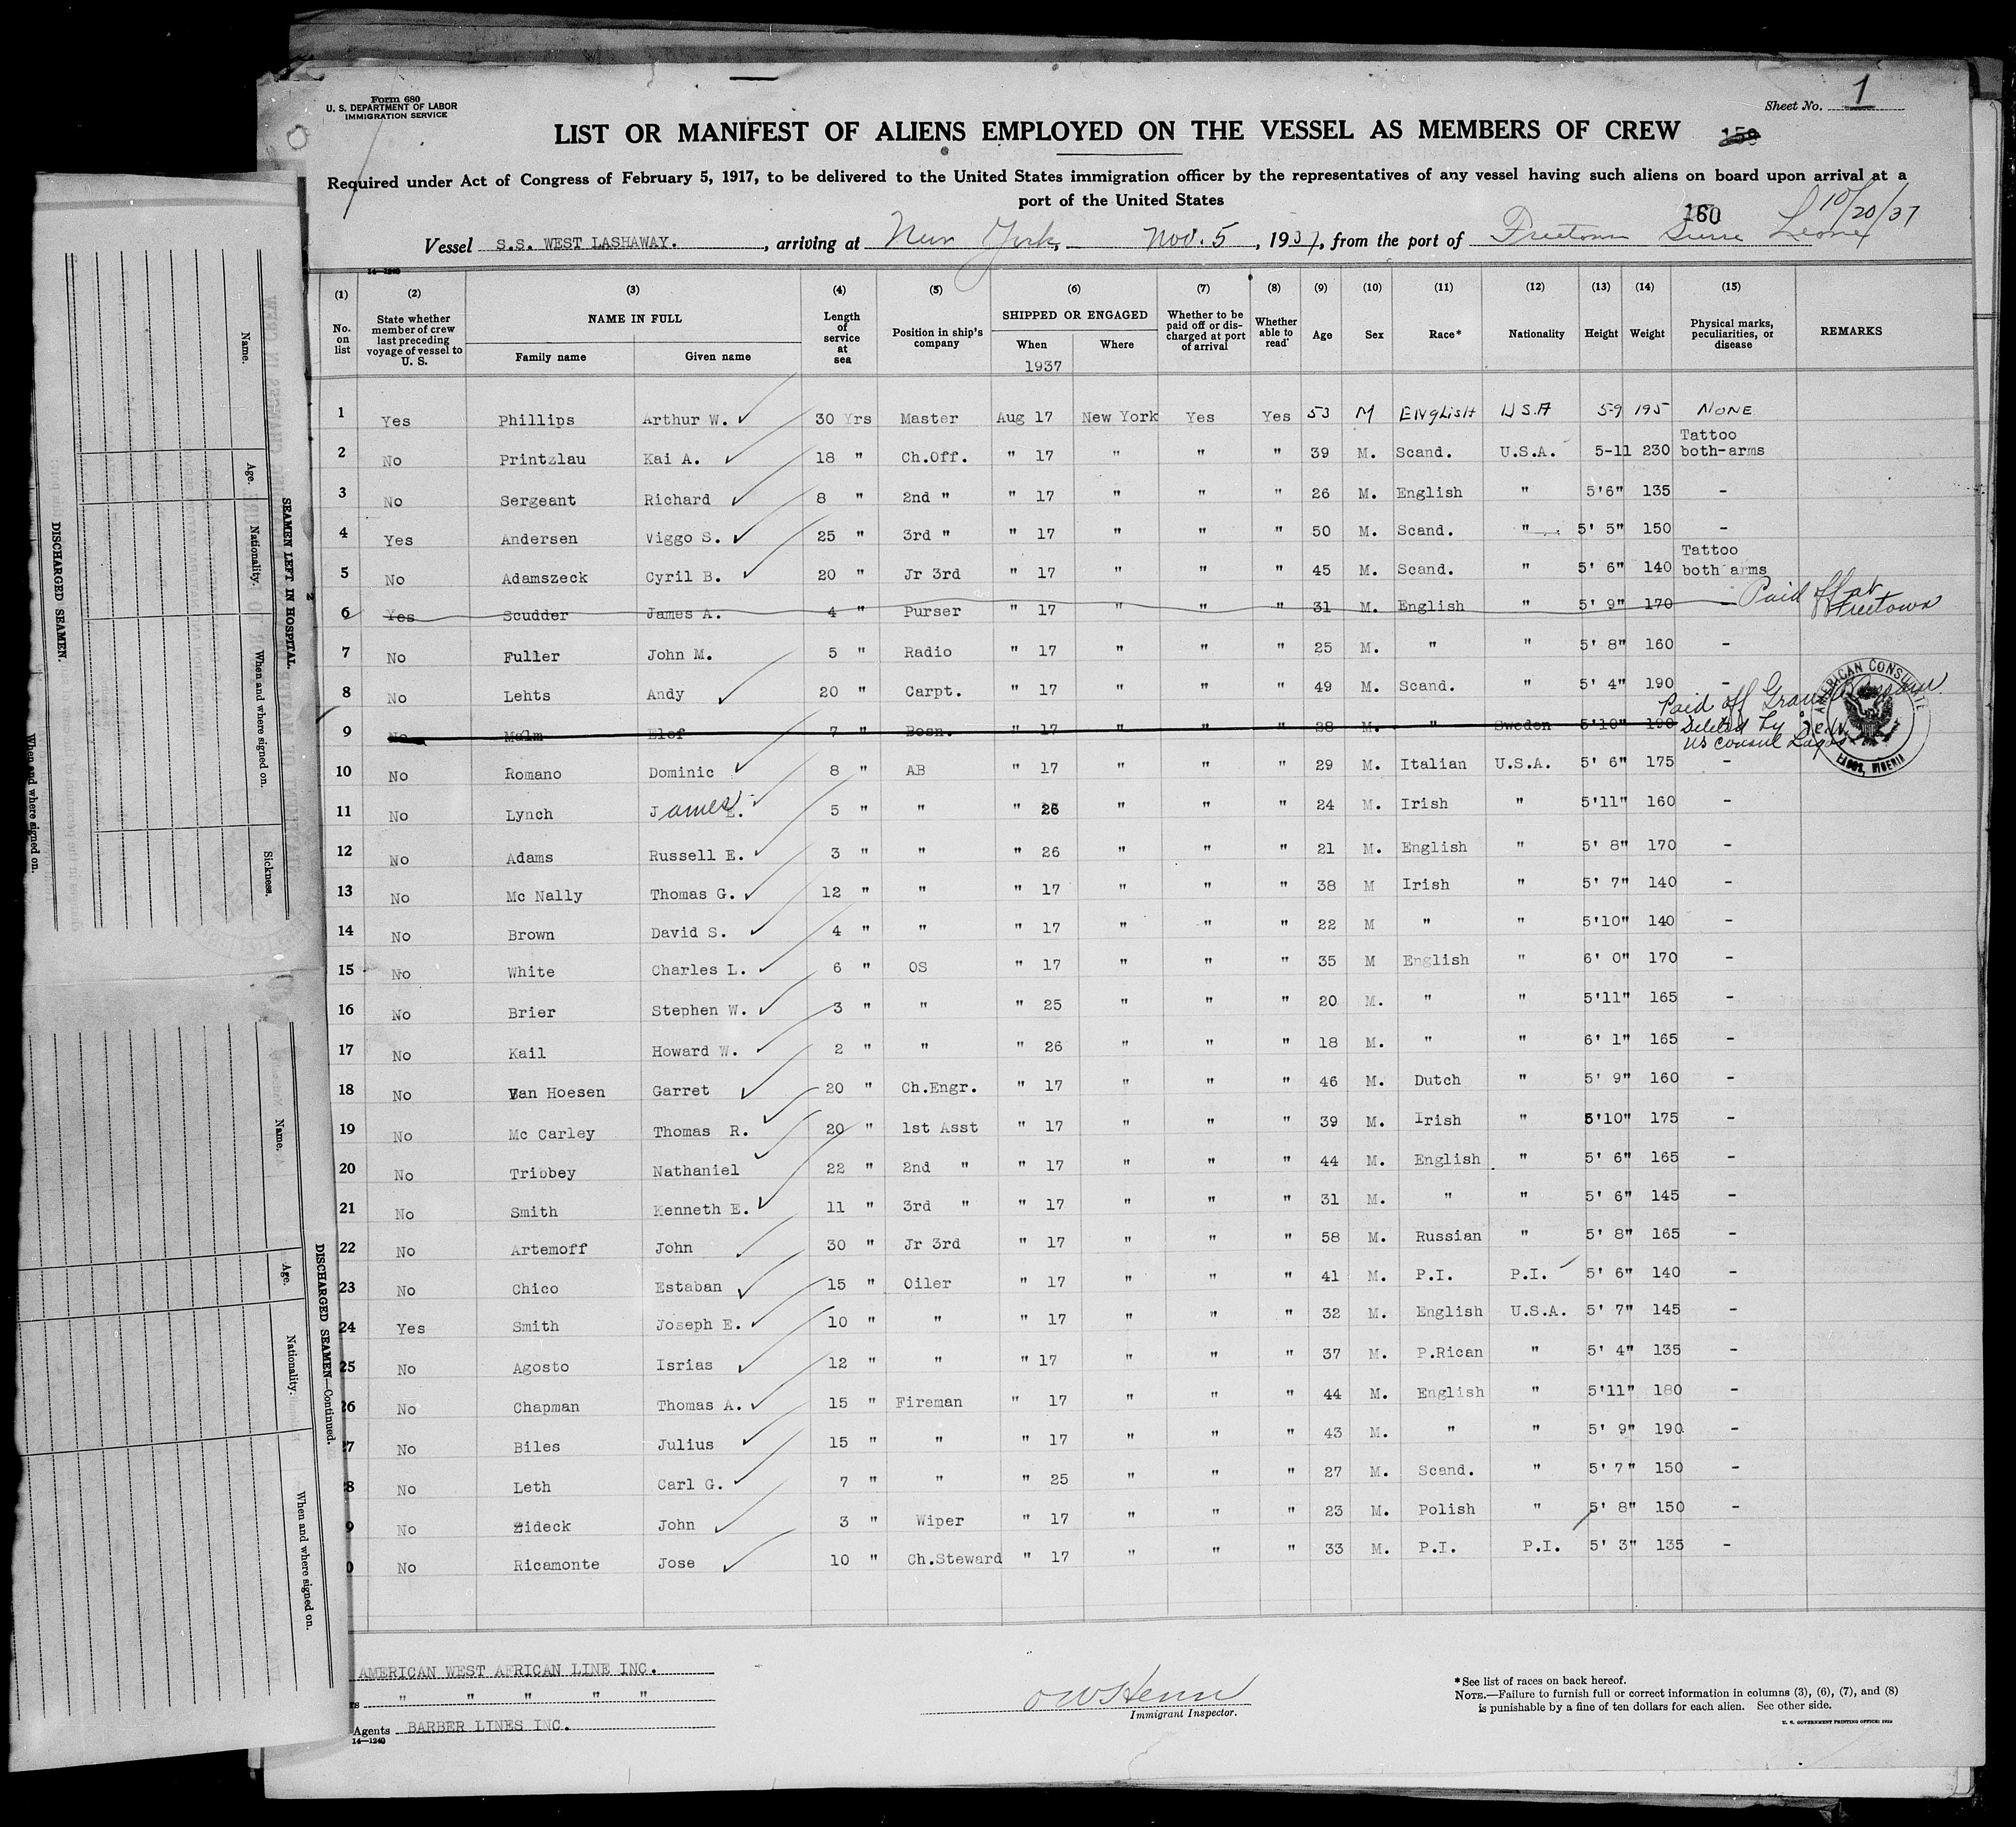 Form 680
U. S. DEPARTMENT OF LABOR
IMMIGRATION SERVICE
Sheet No. 1
LIST OR MANIFEST OF ALIENS EMPLOYED ON THE VESSEL AS MEMBERS OF CREW
Required under Act of Congress of February 5, 1917, to be delivered to the United States immigration officer by the representatives of any vessel having such aliens on board upon arrival at a
port of the United States
160 10/20/37
Vessel S.S. WEST LASHAWAY., arriving at New York, Nov. 5, 1937, from the port of Freetown Sierre Leone
14—1240
(1) (2) (3) (4) (5) (6) (7) (8) (9) (10) (11) (12) (13) (14) (15)
No. on list State whether member of crew last preceding voyage of vessel to U. S. NAME IN FULL Family name Given name Length of service at sea Position in ship's company SHIPPED OR ENGAGED When Where Whether to be paid off or discharged at port of arrival Whether able to read Age Sex Race* Nationality Height Weight Physical marks, peculiarities, or disease REMARKS
1937
1 Yes Phillips Arthur W. 30 Yrs Master Aug 17 New York Yes Yes 53 M ENGLISH USA 5-9 195 NONE
2 No Printzlau Kai A. 18 " Ch.Off. " 17 " " " 39 M. Scand. U.S.A. 5-11 230 Tattoo both-arms
3 No Sergeant Richard 8 " 2nd " " 17 " " " 26 M. English " 5'6" 135 -
4 Yes Andersen Viggo S. 25 " 3rd " " 17 " " " 50 M. Scand. " 5' 5" 150 -
5 No Adamszeck Cyril B. 20 " Jr 3rd " 17 " " " 45 M. Scand. " 5' 6" 140 Tattoo both arms
6 Yes Scudder James A. 4 " Purser " 17 " " " 31 M. English " 5' 9" 170 - Paid off at Freetown
7 No Fuller John M. 5 " Radio " 17 " " " 25 M. " " 5' 8" 160 -
8 No Lehts Andy 20 " Carpt. " 17 " " " 49 M. Scand. " 5' 4" 190 -
9 No Malm Elof 7 " Bosn. " 17 " " " 28 M. " Sweden 5'10" 190 Paid off Grand Bassam Deleted by US Consul Lagos
AMERICAN CONSULATE
LAGOS, NIGERIA
10 No Romano Dominic 8 " AB " 17 " " " 29 M. Italian U.S.A. 5' 6" 175 -
11 No Lynch James E. 5 " " " 26 " " " 24 M. Irish " 5'11" 160 -
12 No Adams Russell E. 3 " " " 26 " " " 21 M. English " 5' 8" 170 -
13 No Mc Nally Thomas G. 12 " " " 17 " " " 38 M Irish " 5' 7" 140 -
14 No Brown David S. 4 " " " 17 " " " 22 M " " 5'10" 140 -
15 No White Charles L. 6 " OS " 17 " " " 35 M English " 6' 0" 170 -
16 No Brier Stephen W. 3 " " " 25 " " " 20 M. " " 5'11" 165 -
17 No Kail Howard W. 2 " " " 26 " " " 18 M. " " 6' 1" 165 -
18 No Van Hoesen Garret 20 " Ch.Engr. " 17 " " " 46 M. Dutch " 5' 9" 160 -
19 No Mc Carley Thomas R. 20 " 1st Asst " 17 " " " 39 M. Irish " 5'10" 175 -
20 No Tribbey Nathaniel 22 " 2nd " " 17 " " " 44 M. English " 5' 6" 165 -
21 No Smith Kenneth E. 11 " 3rd " " 17 " " " 31 M. " " 5' 6" 145 -
22 No Artemoff John 30 " Jr 3rd " 17 " " " 58 M. Russian " 5' 8" 165 -
23 No Chico Estaban 15 " Oiler " 17 " " " 41 M. P.I. P.I. 5' 6" 140 -
24 Yes Smith Joseph E. 10 " " " 17 " " " 32 M. English U.S.A. 5' 7" 145 -
25 No Agosto Isrias 12 " " " 17 " " " 37 M. P.Rican " 5' 4" 135 -
26 No Chapman Thomas A. 15 " Fireman " 17 " " " 44 M. English " 5'11" 180 -
27 No Biles Julius 15 " " " 17 " " " 43 M. " " 5' 9" 190 -
8 No Leth Carl G. 7 " " " 25 " " " 27 M. Scand. " 5' 7" 150 -
9 No Zideck John 3 " Wiper " 17 " " " 23 M. Polish " 5' 8" 150 -
0 No Ricamonte Jose 10 " Ch.Steward " 17 " " " 33 M. P.I. P.I. 5' 3" 135 -
AMERICAN WEST AFRICAN LINE INC.
rs " " " " "
Agents BARBER LINES INC.
14—1240
Immigrant Inspector.
*See list of races on back hereof.
NOTE.—Failure to furnish full or correct information in columns (3), (6), (7), and (8)
is punishable by a fine of ten dollars for each alien. See other side.
U. S. GOVERNMENT PRINTING OFFICE: 1929
SEAMEN LEFT IN HOSPITAL.
Name. Age. Nationality. When and where signed on. Sickness.
DISCHARGED SEAMEN.
When and where signed on.
DISCHARGED SEAMEN—Continued.
Name. Age. Nationality. When and where signed on.